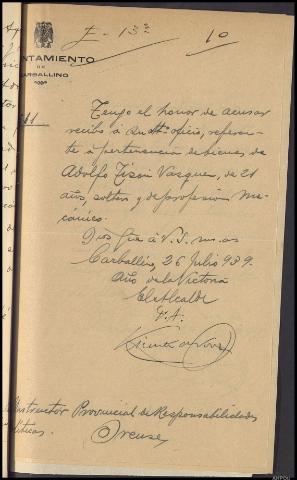 E - 13
10
NTAMIENTO
DE
CARBALLINO
11
Tengo el honor de acusar
recibo á su att.º oficio, referen-
te á pertenencia de bienes de
Adolfo Vázquez, de 21
años, soltero y de profesion me-
cánico.
Dios gue á V. S. m. as
Carballino, 26 Julio 939.
Año de la Victoria
El Alcalde
Instructor Provincial de Responsabilidades
líticas.
Orense
ANPOU